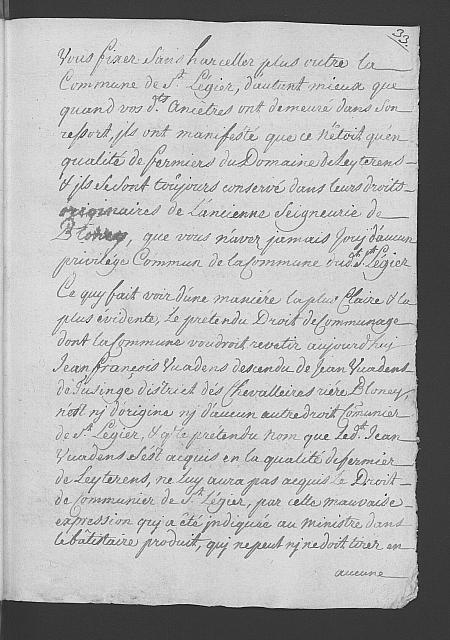 33.
Vous fixer Sans harceller plus outre la
Commune de St. Légier, d'autant mieux que
quand vos dts. Ancètres ont demeuré dans Son
ressort, jls ont manifesté que ce n'étoit qu'en
qualité de fermiers du Domaine de Leyterens
& jls se sont toûjours conservé dans leurs droits
originaires de L'ancienne Seigneurie de
Bloney, que vous n'avez jamais Jouj d'aucun
privilége Commun de la Commune dud. St. Légier
Ce quj fait voir d'une maniére la plus Claire & la
plus évidente, Le prétendu Droit de Communage
dont la Commune voudroit revetir aujourd'huj
Jean François Vuadens descendu de Jean Vuadens
de Fusinge district dés Chevalleires riére Bloney,
n'est nj d'origine nj d'aucun autre droit Comunier
de St. Légier, & qe. le prétendu Nom que Led. Jean
Vuadens s'est acquis en la qualité de fermier
de Leyterens, ne luy aura pas acquis Le Droit
de Communier de St. Légier, par celle mauvaise
expression quj a été jndiquée au ministre dans
le bâtistaire produit, quj ne peut nj ne doit tirer en
aucune